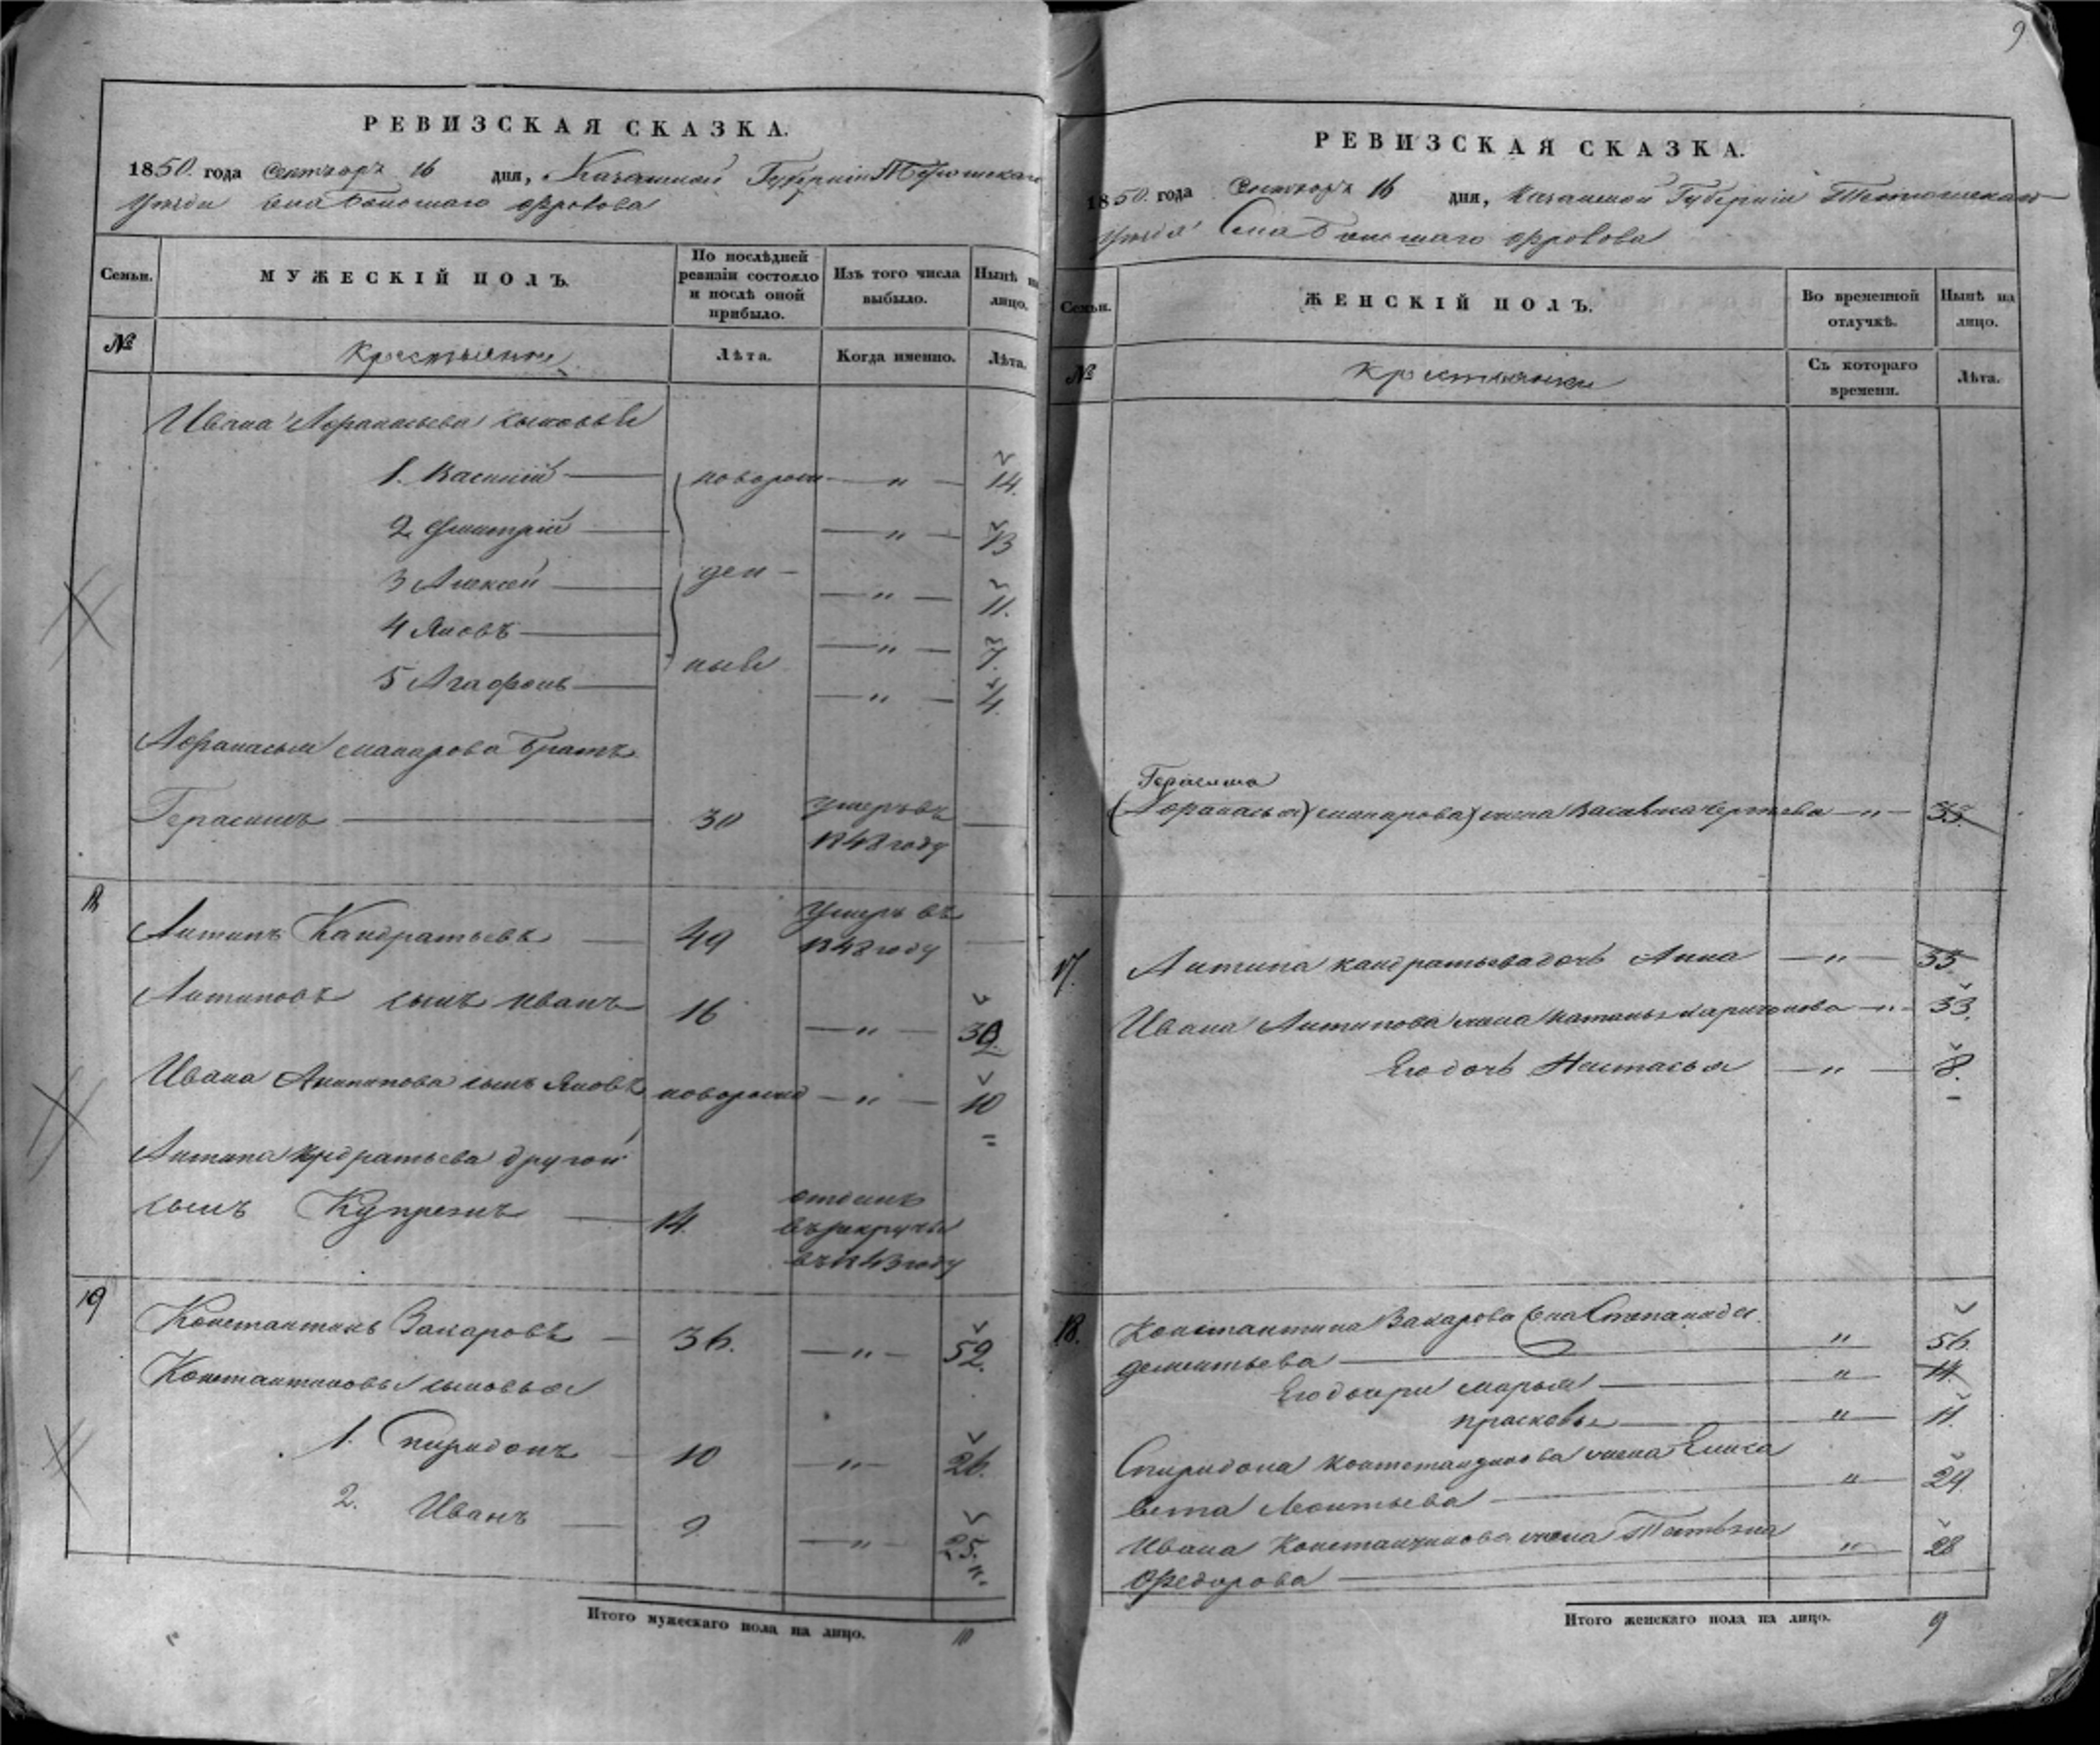 9
РЕВИЗСКАЯ СКАЗКА.
1850. года Сентябрь 16 дня, Казанской Губернии Тетюшскаго
Уезда Села Большаго Фролова
Семьи. МУЖЕСКІЙ ПОЛЪ. По послѣдней ревизіи состояло и послѣ оной прибыло. Изъ того числа выбыло. Нынѣ на лицо.
№ Крестьяне Лѣта. Когда именно. Лѣта.
Ивана Афанасьева сыновья
1. Василій новорож — " — 14.
2 Дмитрій — " — 13
3 Алексей ден — — " — 11.
4 Яковъ — " — 7.
5 Агафонъ ные — " — 4.
Афанасья макарова Братъ
Герасимъ — 30 умеръ въ 1848 году —
18 Антипъ Кандратьевъ — 49 Умеръ въ 1848 году —
Антиповъ сынъ иванъ 16 — " — 30.
Ивана Антипова сынъ Яковъ новорожд — " — 10
Антипа Кндратьева другой
сынъ Купреянъ — 14. отданъ въ рекруты въ 1843 году
19 Константинъ Захаровъ — 36. — " — 52.
Константиновы сыновья
1. Спиридонъ — 10 — " — 26.
2. Иванъ — 9 — " — 25.
Итого мужескаго пола на лицо. 10
РЕВИЗСКАЯ СКАЗКА.
1850. года Сентябрь 16 дня, Казанской Губерніи Тетюшскаго
Уезда Села Большаго Фролова
Семьи. ЖЕНСКІЙ ПОЛЪ. Во временной отлучкѣ. Нынѣ на лицо.
№ Крестьянки Съ котораго времени. Лѣта.
Герасима
(Афанасья) макарова) жена Васовна Сергеева — " — 35.
17. Антипа кандратьева дочь Анна — " — 35.
Ивана Антипова жена Харитонова — " — 33.
Его дочь Настасья — " — 8.
18. Константина Захарова жена Степанида
дементьева — " 56.
Его дочери марья — " 14.
прасковья — " — 11.
Спиридона Константинова жена Елиса
вета Леонтьева — " — 29.
Ивана Константинова жена Татьяна
Федорова — " — 28
Итого женскаго пола на лицо. 9